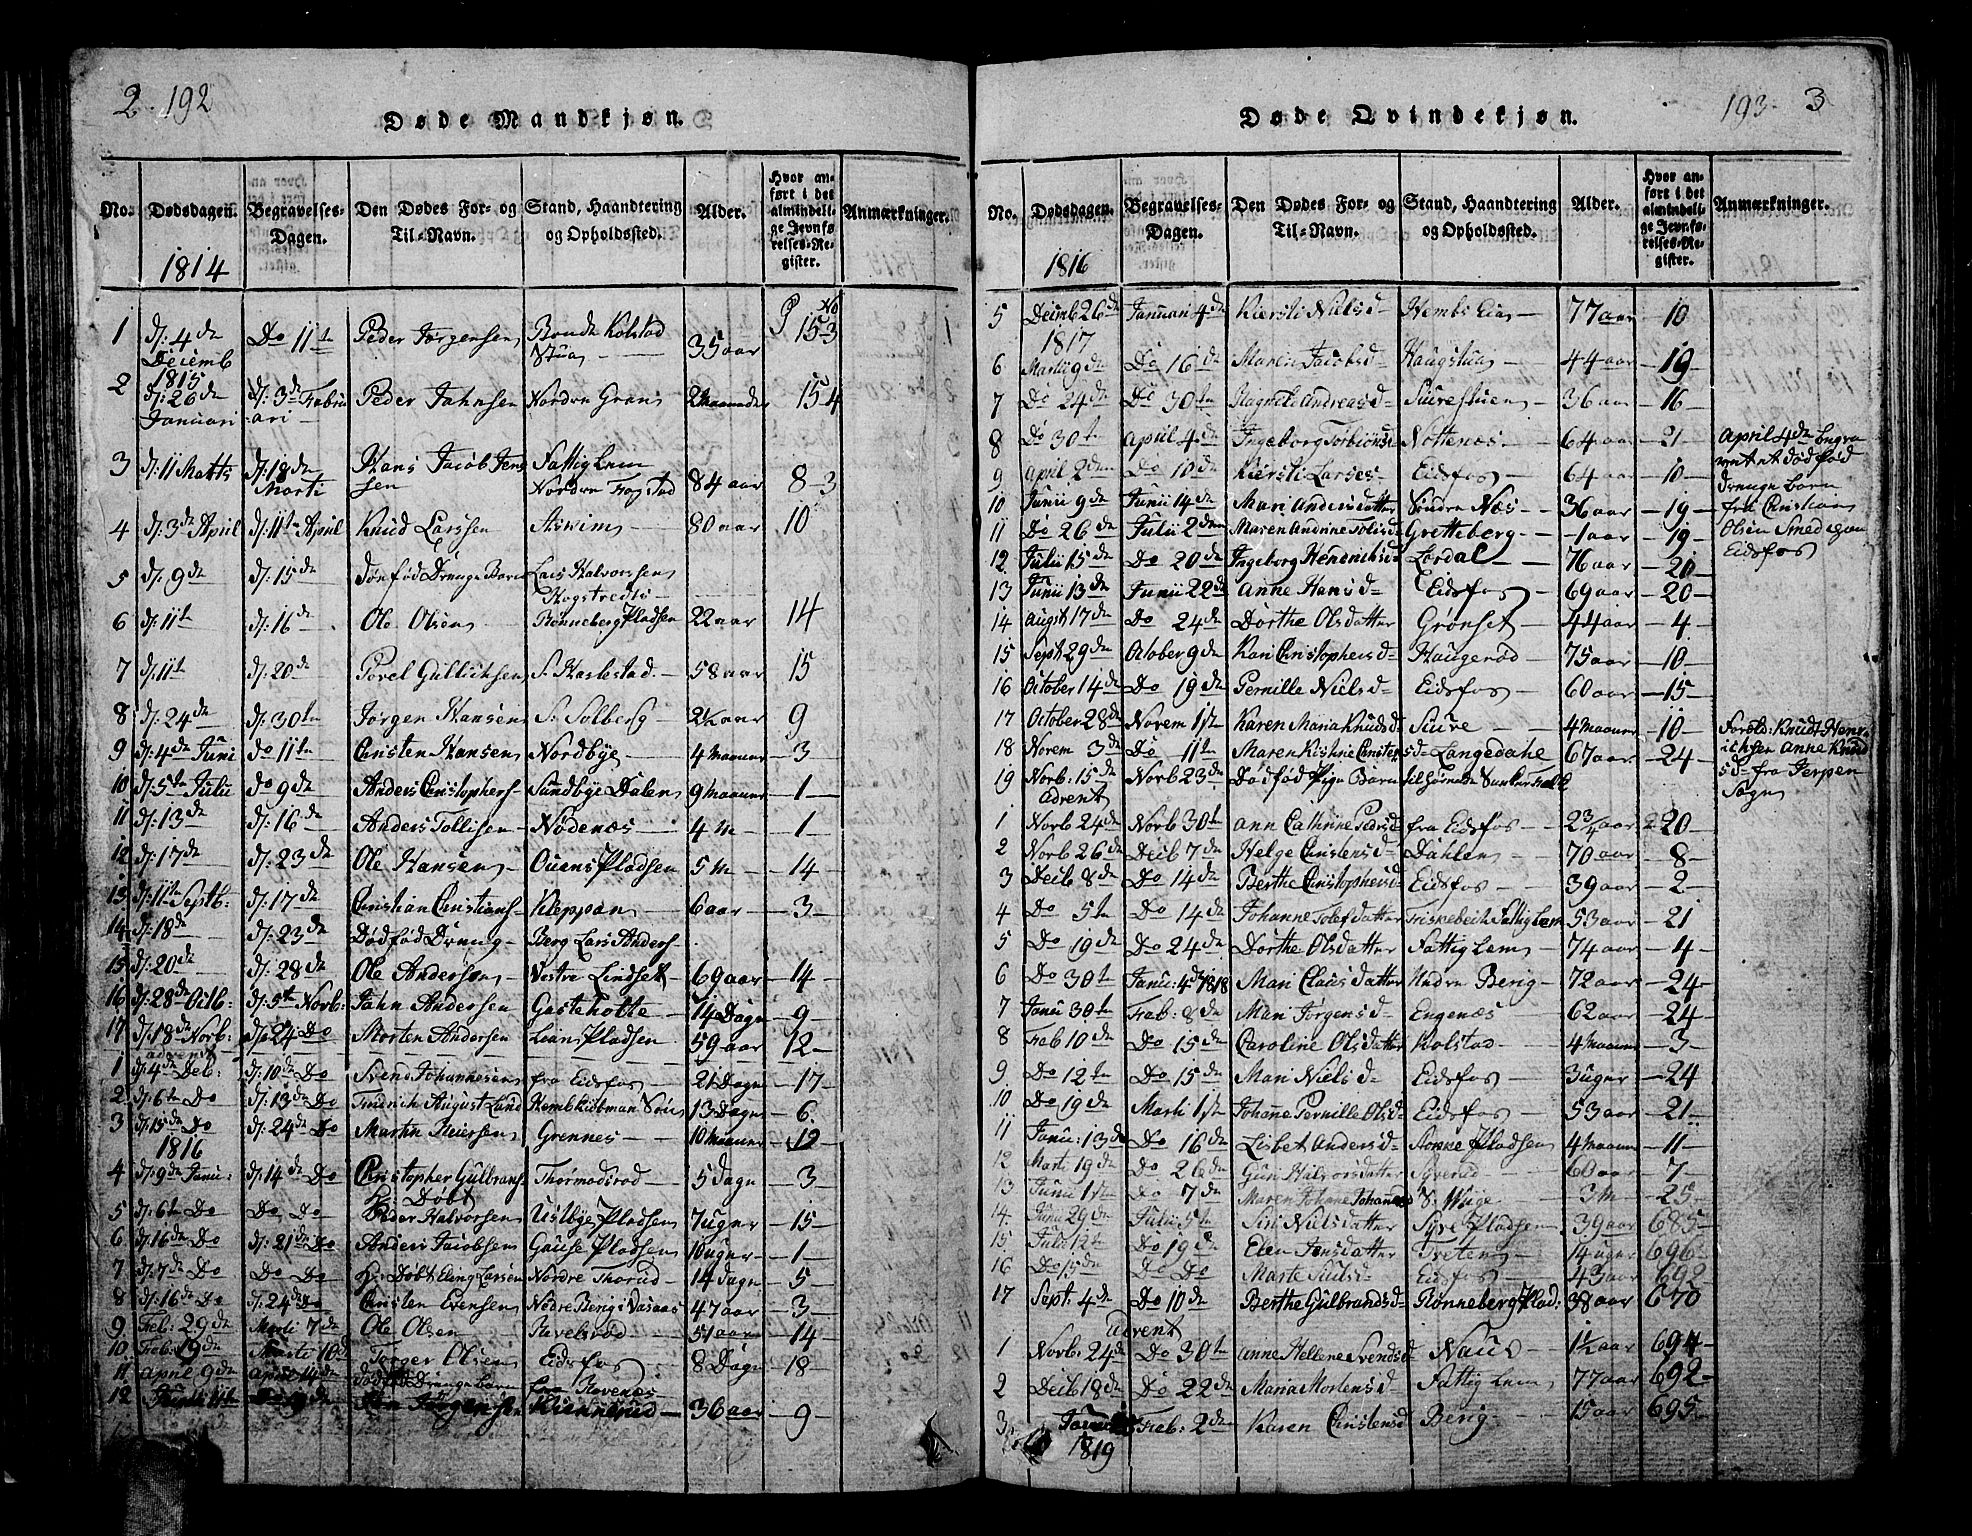 2. 192
Døde Mandkjøn.
No. Dødsdagen. Begravelses-Dagen. Den Dødes For- og Til-Navn. Stand, Haandtering og Opholdssted. Alder. Hvor anført i det almindelige Jevnførelses-Register. Anmærkninger.
1814
1 d: 4de Decemb Do 11te Peder Jørgensen Kolstad Stua 35 aar P 15 No 3
1815
2 d: 26de Januari d: 3de Februari Peder Jahnsen Nordre Gran 2 Maaneder 15 4
3 d: 11 Matts d: 18de Marti Hans Jacob Jensen Fattig Lem Nordre Fogstad 84 aar 8-3
4 d: 3de April d: 11te April Knud Larssen Askim 80 aar 10
5 d: 9de d: 15de Drenge Barn Lars Halvorssen
6 d: 11te d: 16de Ole Olsen Rønneberg Pladsen 22 aar 14
7 d: 11te d: 20de Povel Gullichsen S: Haslestad 58 aar 15
8 d: 24de d: 30te Jørgen Hansen S: Solberg 2½ aar 9
9 d: 4de Juni do 11te Christen Hansen Nordbye 4 Maaner 3
10 d: 5te Julii do 9de Anders Christophers Sundbye Dalen 9 Maaner 1
11 d: 13de d: 16de Anders Tollisen Nødenæs 4 M 1
12 d: 17de d: 23de Ole Hansen Ouens Pladsen 5 M 14
13 d: 11te Septb: d: 17de Christian Christians Kleppan 6 aar 3
14 d: 18de d: 23de Dødfød Dreng Berg Lars Anders
15 d: 20de d: 28de Ole Andersen Vestre Lindset 69 aar 14
16 d: 28de Octb: d: 5te Novb: Jahn Andersen Gasteholte 14 Dage 9
17 d: 18de Novb: d: 24 Do Morten Andersen Lians Pladsen 59 aar 12
advent
1 d: 4de Deb: d: 10de Do Svend Johannesen fra Eidsfos 21 Dage 17
2 d: 6te Do d: 13de Do Fredrich August Lund 13 Dage 6
3 d: 15de Do d: 24de Do Martin Grennes 10 Maaner 12
1816
4 d: 9de Janu: d: 14de Do Christopher Gulbrans Thormodsrod 5 dage 3
5 d: 6te Do Do Do Hj: Døbt Peder Halvorsen Ustbye Pladsen 7 uger 15
6 d: 16de Do d: 21de Do Anders Jacobsen Gause Pladsen 10 uger 1
7 d: 7de Do Do Do Hj: Døbt Eling Larsen Nordre Thorud 14 dage 5
8 d: 16de Do d: 24de Do Christen Evensen Nødre Berig 47 aar 3
9 Feb: 29de Marti 7de Ole Olsen Revelsrød 51 aar 14
10 Feb: 19de Marti 10de Torger Olsen Eidsfos 8 Dage 18
11 April 9de April 14de dødfød Drenge barn fra Hovenæs
12 11te Jørgensen 36 aar 9
193 3
Døde Qvindekjøn.
No. Dødsdagen. Begravelses-Dagen. Den Dødes For- og Til-Navn. Stand, Haandtering og Opholdssted. Alder. Hvor anført i det almindelige Jevnførelses-Register. Anmærkninger.
1816
5 Decmb 26de Januari 4de Kiersti Nielsd Hembs Eie 77 aar 10
1817
6 Marti 9de Do 16de Maren Jacobsd Haugstua 44 aar 19
7 Do 24de Do 30te Ragnild Andreasd Suurestuen 36 aar 16
8 Do 30te April 4de Ingeborg Torbiønsd Nottenæs 64 aar 21
9 April 2den Do 10de Kiersti Larses Eidsfos 64 aar 10
10 Junii 9de Junii 14de Mari Andersdatter Søndre Næs 36 aar 19
11 Do 26de Julii 2den Maren Andrine Gretteberg 1 aar 19
12 Julii 15de Do 20de Ingeborg Henrichsd Lordal 76 aar 20
13 Junii 13de Junii 22de Anne Hansd Eidsfos 69 aar 20
14 Augst 17de Do 24de Dorthe Olsdatter Grønset 44 aar 4
15 Septb 29de October 9de Kari Christophersd Haugerød 75 aar 10
16 October 14de Do 19de Pernille Nielsd Eidsfos 60 aar 15
17 October 28de Novem 1ste Karen Maria Knudsd Suure 4 Maaner 10
18 Novem 3de Do 11te Maren Kistine Christensd Langedahle 67 aar 24
19 Novb: 15de Novb 23de Dødfød Pige Barn
April 4de begravet et dødfød drenge barn fra Christian Olsen Smed paa Eidsfos
Foreld: Knudt Henrichsen Anne Knudsd fra Jerpen Sogn
advent
1 Novb 24de Novb 30te ann Cathrine Pedersd fra Eidsfos 2¾ aar 20
2 Novb 26de Decb 7de Helge Christensd Dahlen 70 aar 8
3 Decb 8de Do 14de Berthe Christophersd Eidsfos 39 aar 2
4 Do 5te Do 14de Johanne Tolefsdatter Friskebeck Fattig Lem 53 aar 21
5 Do 19de Do 24de Dorthe Olsdatter Fattig Lem 74 aar 4
6 Do 30te Janu: 4de 1818 Mari Clausdatter Nedre Berig 72 aar 24
7 Janu 30te Feb: 8de Mari Jørgensd Engenæs 62 aar 24
8 Feb 10de Do 15de Caroline Olsdatter Kolstad 4 Maaner 3
9 Do 12te Do 15de Mari Nielsd Eidsfos 3 uger 24
10 Do 19de Marti 1ste Johanne Pernille Olsd Eidsfos 53 aar 21
11 Janu: 13de Do 16de Lisbet Andersd Rønne Pladsen 4 Maaner 11
12 Marti 19de Do 26de Guri Halvorsdatter Syverud 60 aar 7
13 Junii 1ste Do 7de Maren Johane Johannesd S. Wige 3 M 25
14 Junii 29de Julii 5te Siri Nielsdatter Syre Pladsen 39 aar 685
15 Julii 12te Do 19de Elen Jensdatter Treten 14 uger 696
16 Do 15de Do Do Marte Eidsfos 43 aar 692
17 Sept. 4de Do 10de Berthe Gulbrandsd Rønneberg Plad: 38 aar 670
Advent
1 Novb: 24de Do 30te Anne Hellene Svendsd Naus 1½ aar 694
2 Decb 18de Do 22de Maria Mortensd Fattig Lem 77 aar 692
3 Janu 1819 Feb: 2de Karen Christensd Berig 15 aar 695